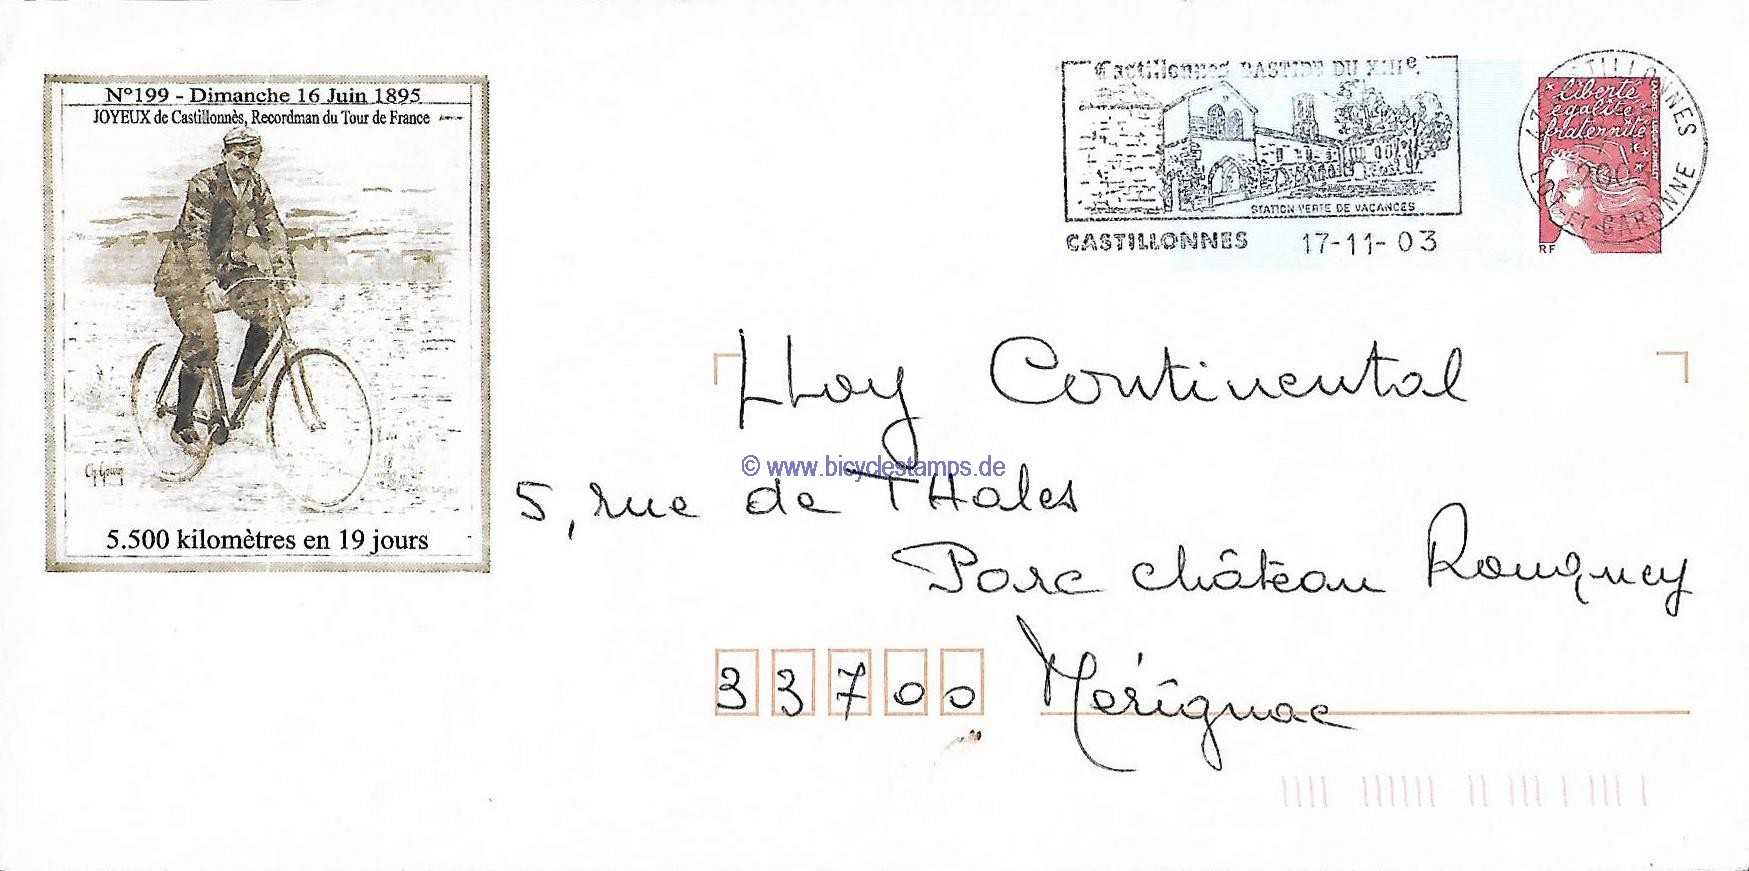 N°199 - Dimanche 16 Juin 1895
JOYEUX de Castillonnès, Recordman du Tour de France
5.500 kilomètres en 19 jours
Castillonnes BASTIDE DU XIIIe
STATION VERTE DE VACANCES
CASTILLONNES 17-11-03
47 CASTILLONNES
LOT-ET-GARONNE
liberté
égalité
fraternité
RF
LLoy Continental
© www.bicyclestamps.de
5, rue de THales
Parc château Rouquey
33700 Mérignac